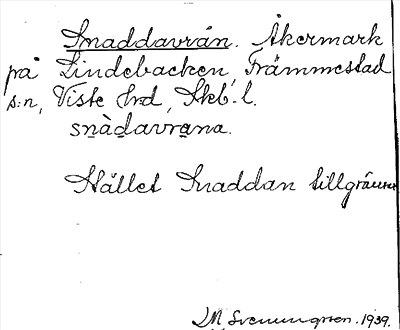 Snaddavrån. Åkermark
på Lindebacken, Främmestad
s:n, Viste hrd, Skb. l.
snàdavrana.
Stället Snaddan tillgränsar
M Svenungsson. 1939.